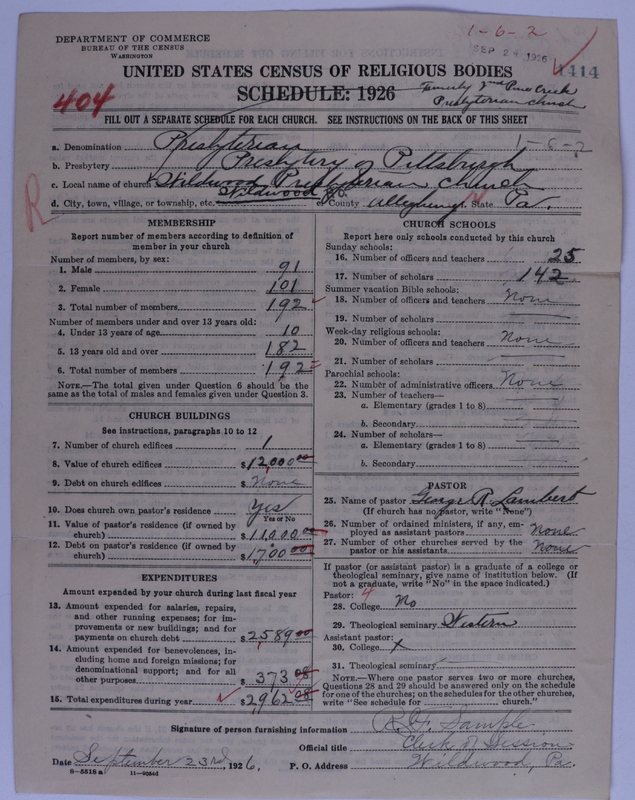 DEPARTMENT OF COMMERCE
BUREAU OF THE CENSUS
WASHINGTON
1-6-2
SEP 24 1926
1414
UNITED STATES CENSUS OF RELIGIOUS BODIES
SCHEDULE: 1926
404
Formerly 2nd Pine Creek
Presbyterian Church
FILL OUT A SEPARATE SCHEDULE FOR EACH CHURCH. SEE INSTRUCTIONS ON THE BACK OF THIS SHEET
a. Denomination Presbyterian 1-6-2
b. Presbytery Presbytery of Pittsburgh
c. Local name of church Wildwood Presbyterian Church
d. City, town, village, or township, etc. Wildwood, County Allegheny State Pa.
R
MEMBERSHIP
Report number of members according to definition of
member in your church
Number of members, by sex:
1. Male 91
2. Female 101
3. Total number of members 192
Number of members under and over 13 years old:
4. Under 13 years of age 10
5. 13 years old and over 182
6. Total number of members 192
NOTE.—The total given under Question 6 should be the
same as the total of males and females given under Question 3.
CHURCH BUILDINGS
See instructions, paragraphs 10 to 12
7. Number of church edifices 1
8. Value of church edifices $12,000 00
9. Debt on church edifices $ None
10. Does church own pastor's residence Yes
Yes or No
11. Value of pastor's residence (if owned by
church) $11,000 00
12. Debt on pastor's residence (if owned by
church) $1,700 00
EXPENDITURES
Amount expended by your church during last fiscal year
13. Amount expended for salaries, repairs,
and other running expenses; for im-
provements or new buildings; and for
payments on church debt $2589 00
14. Amount expended for benevolences, in-
cluding home and foreign missions; for
denominational support; and for all
other purposes $373 08
15. Total expenditures during year $2962 08
CHURCH SCHOOLS
Report here only schools conducted by this church
Sunday schools:
16. Number of officers and teachers 25
17. Number of scholars 142
Summer vacation Bible schools:
18. Number of officers and teachers None
19. Number of scholars
Week-day religious schools:
20. Number of officers and teachers None
21. Number of scholars
Parochial schools:
22. Number of administrative officers None
23. Number of teachers—
a. Elementary (grades 1 to 8)
b. Secondary
24. Number of scholars—
a. Elementary (grades 1 to 8)
b. Secondary
PASTOR
25. Name of pastor George R. Lambert
(If church has no pastor, write "None")
26. Number of ordained ministers, if any, em-
ployed as assistant pastors None
27. Number of other churches served by the
pastor or his assistants None
If pastor (or assistant pastor) is a graduate of a college or
theological seminary, give name of institution below. (If
not a graduate, write "No" in the space indicated.)
Pastor: 4
28. College No
29. Theological seminary Western
Assistant pastor:
30. College x
31. Theological seminary
NOTE.—Where one pastor serves two or more churches,
Questions 28 and 29 should be answered only on the schedule
for one of the churches; on the schedules for the other churches,
write "See schedule for church."
Signature of person furnishing information R. F. Sample
Official title Clerk of Session
Date September 23rd, 1926. P. O. Address Wildwood, Pa.
8-5518 a 11-9564d